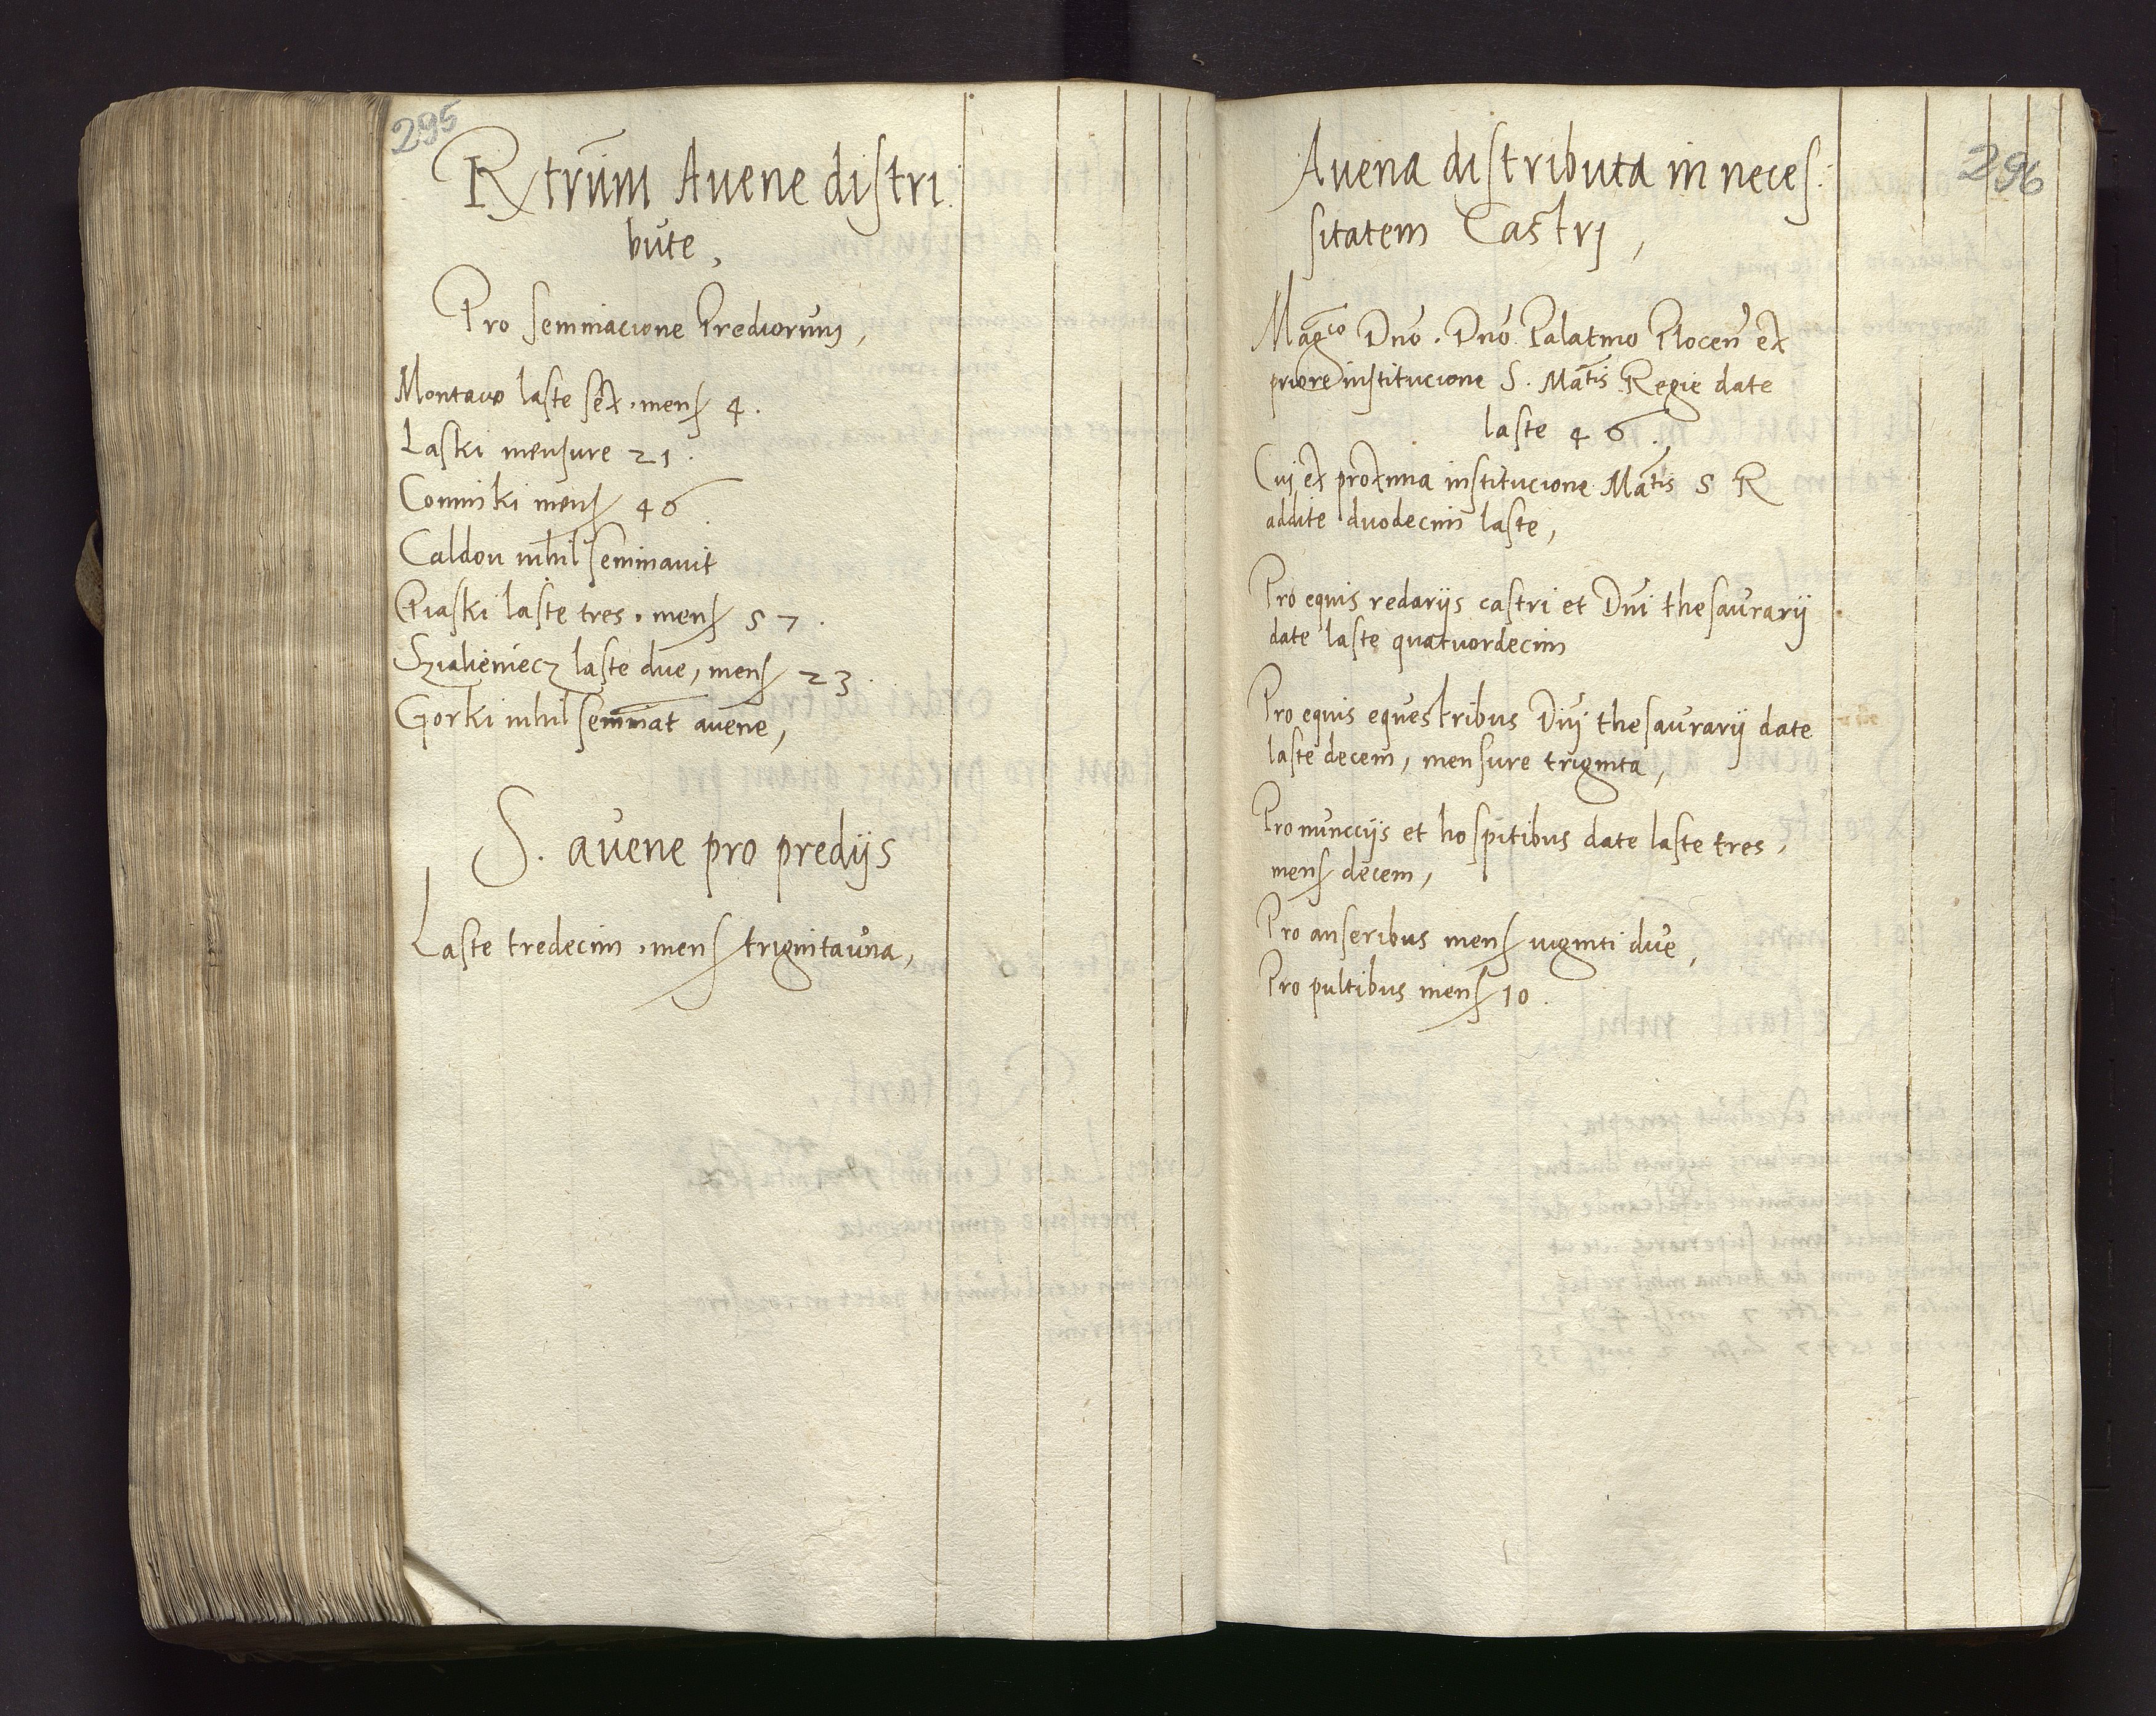 295
Rtrum Avene distri
bute,
Pro seminacione Prediorum,
Montaw laste sex, mens 4.
Laski mensure 21.
Cominki mens 46
Caldow nihil seminavit
Piaski laste tres, mens 57.
Szialieniecz laste due, mens 23.
Gorki nihil seminat avene,
S. avene pro predijs
Laste tredecim, mens triginta una,
296
Avena distributa in neces:
sitatem Castrj,
Magco Dno. Dno Palatino Plocen ex
priore institucione S. Matis Regie date
laste 46.
Cuj ex proxima institucione Matis S R
addite duodecim laste,
Pro equis redarijs castri et Dni thesaurarij
date laste quatuordecim
Pro equis equestribus Dnj thesaurarij date
laste decem, mensure triginta,
Pro nuncijs et hospitibus date laste tres,
mens decem,
Pro anseribus mens viginti due,
Pro pultibus mens 10.